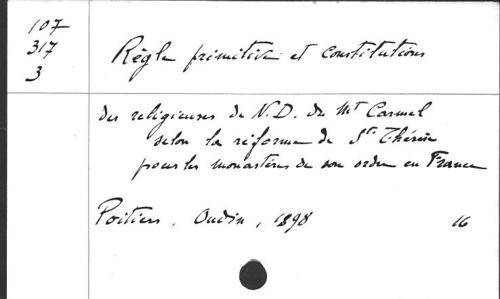 107
317
3
Règle primitive et constitutions
des religieuses de N.D. du Mt Carmel
selon la réforme de Ste Thérèse
pour les monastères de son ordre en France
Poitiers, Oudin, 1898 16